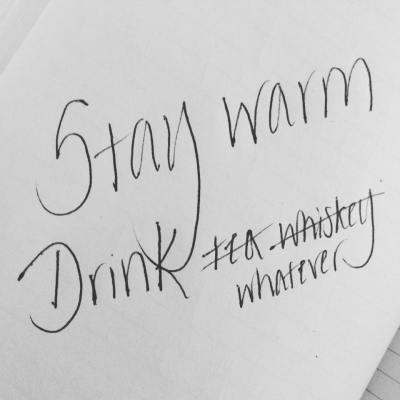 Stay warm
Drink tea whiskey
whatever